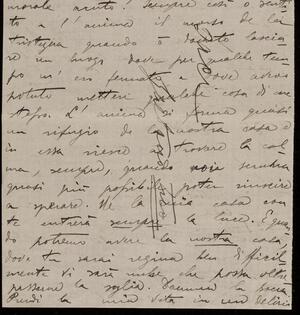 morale avuto! Sempre così o senti
to a l'anima il morso de la
tristezza quando ò dovuto lascia
re un luogo dove per qualche tem
po m'ero fermato e dove avevo
potuto mettere qualche cosa di me
stesso. L'anima si forma quasi
un rifugio de la nostra casa e
in essa riesce a trovare la cal
ma, sempre, quando non sembra
quasi più possibile poter riuscire
a sperare. Ne la mia casa con
te entrerà sempre la luce. E quan
do potremo avere la nostra casa,
dove tu sarai regina ben difficil
mente vi sarà nube che possa oltre
passarne la soglia. Dammi la bocca
Prendi la mia vita in un delirio